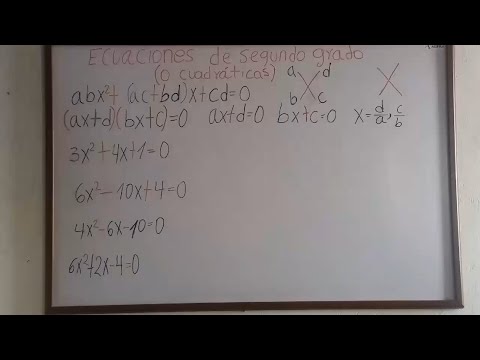 Ecuaciones de segundo grado
(o cuadráticas)
a d
b c
abx²+(ac+bd)x+cd=0
(ax+d)(bx+c)=0 ax+d=0 bx+c=0 x=d/a, c/b
3x²+4x+1=0
6x²-10x+4=0
4x²-6x-10=0
6x²+2x-4=0